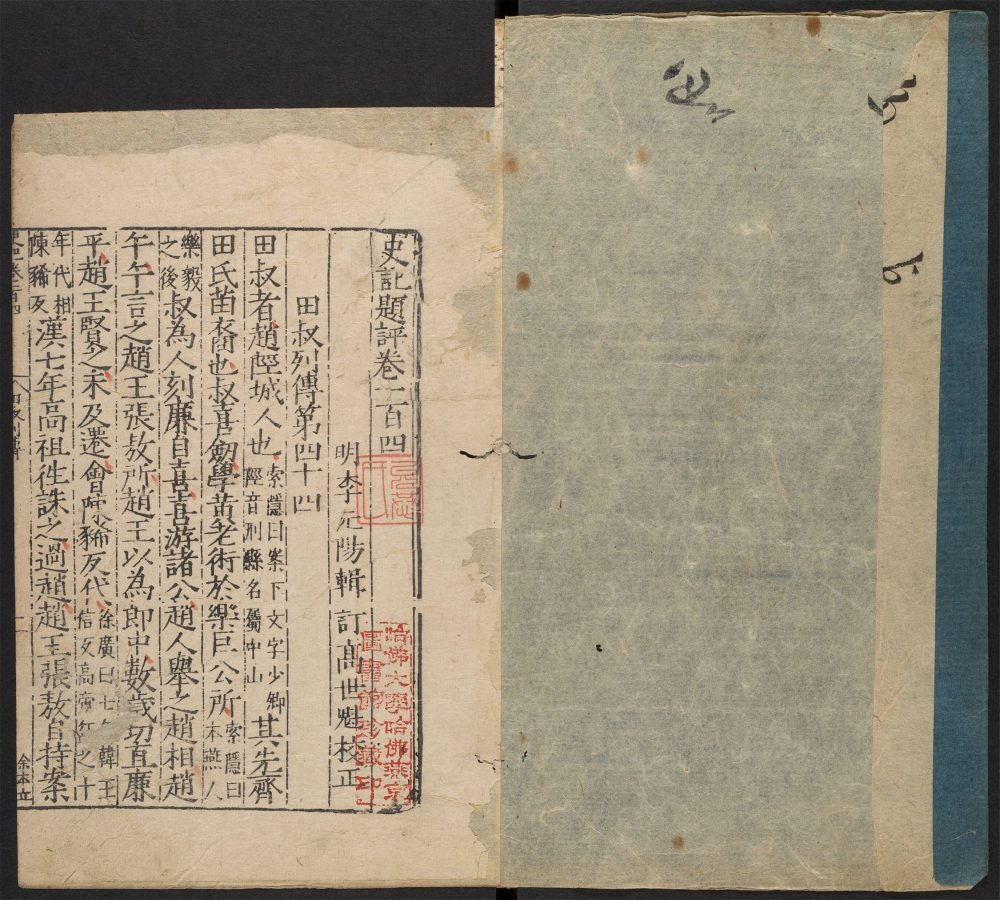 史記題評卷一百四
明李元陽輯訂高世魁校正
田叔列傳第四十四
田叔者趙陘城人也索隱曰案下文字少卿陘音刑縣名屬中山其先齊
田氏苗裔也叔喜劒學黃老術於樂巨公所索隱曰本燕人
樂毅之後叔為人刻廉自喜喜游諸公趙人舉之趙相趙
午午言之趙王張敖所趙王以為郎中數歲切直廉
平趙王賢之未及遷會陳豨反代徐廣曰七年韓王信反高帝征之十
年代相陳豨反漢七年高祖往誅之過趙趙王張敖自持案
余本立
哈佛大學哈佛燕京
圖書館珍藏印